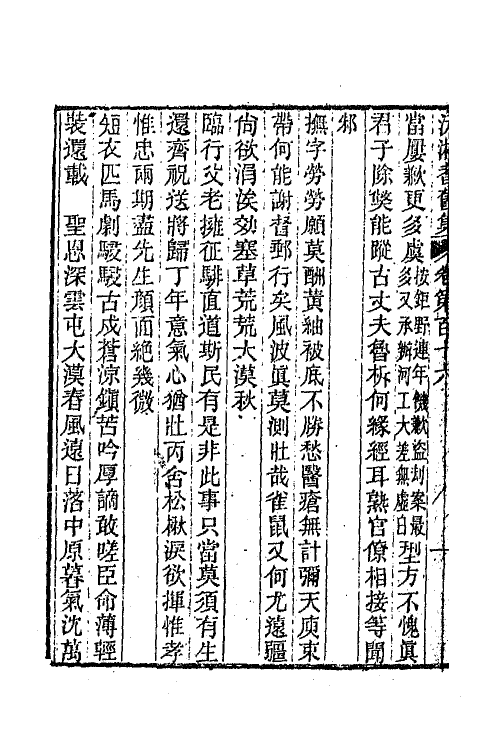 沅湘耆舊集 卷第百十六
當屢歉更多虞按鉅野連年饑歉盜刦案最多又承辦河工大差無虛日型方不愧眞
君子除獘能蹤古丈夫魯柝何緣經耳熟官僚相接等聞
邾
撫字勞勞願莫酬黃紬被底不勝愁醫瘡無計彌天庾束
帶何能謝督郵行矣風波眞莫測壯哉雀鼠又何尤遠疆
尙欲涓涘効塞草荒荒大漠秋
臨行父老擁征騑直道斯民有是非此事只當莫須有生
還齊祝送將歸丁年意氣心猶壯丙舍松楸淚欲揮惟孝
惟忠兩期盡先生顏面絕幾微
短衣匹馬劇駸駸古戍蒼涼鎭苦吟厚謫敢嗟臣命薄輕
裝還載 聖恩深雲屯大漠春風遠日落中原暮氣沈萬